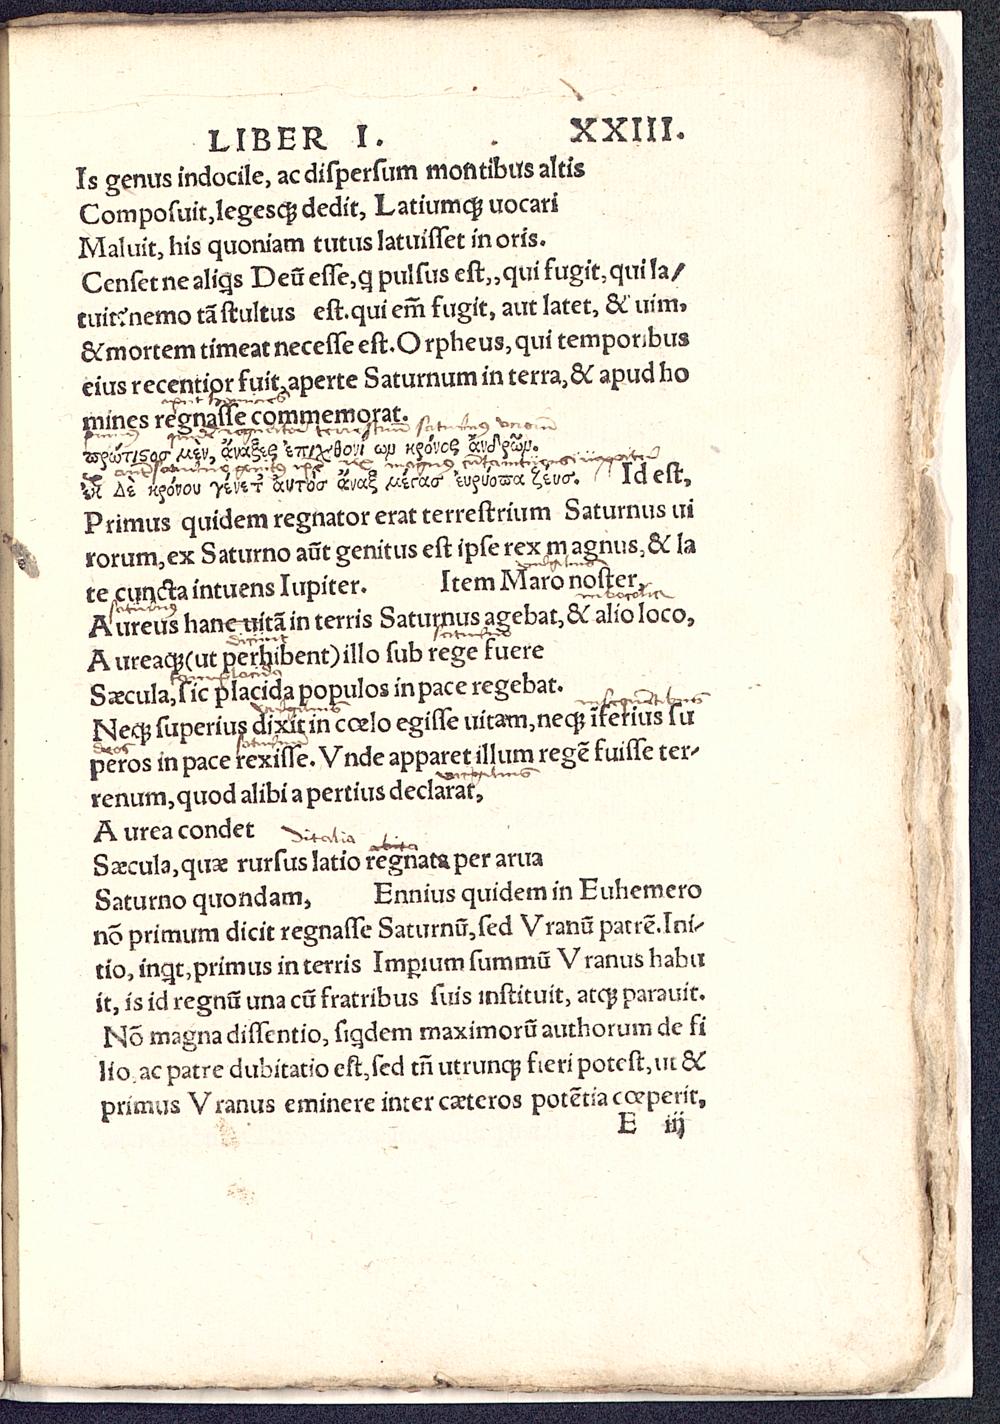 LIBER I. XXIII.
Is genus indocile, ac diſperſum montibus altis
Compoſuit, legesqꝫ dedit, Latiumqꝫ uocari
Maluit, his quoniam tutus latuiſſet in oris.
Cenſet ne aliꝗs Deũ eſſe, ꝗ pulſus eſt,, qui fugit, qui la/
tuit? nemo tã ſtultus eſt. qui em̃ fugit, aut latet, & uim,
& mortem timeat neceſſe eſt. Orpheus, qui temporibus
eius recentior fuit, aperte Saturnum in terra, & apud ho
mines regnaſſe commemorat.
primus quidem regnator terrestrium saturnus virorum
πρώτιϛος μὲν, ἄναξες ἐπιχθονί ων κρόνος ἀνδρῶν.
ἐκ δὲ κρόνου γένετ᾽ ἀυτὸς ἄναξ μέγας ἐυρυοπα ζεύς. Id eſt,
Primus quidem regnator erat terreſtrium Saturnus ui
rorum, ex Saturno aũt genitus eſt ipſe rex magnus, & la
virgilius
te cuncta intuens Iupiter. Item Maro noſter,
saturnus
Aureus hanc uitã in terris Saturnus agebat, & alio loco,
dicunt
Aureaqꝫ (ut perhibent) illo ſub rege fuere
Sæcula, ſic placida populos in pace regebat.
virgilius
Neqꝫ ſuperius dixit in cœlo egiſſe uitam, neqꝫ ĩferius ſu
deos
peros in pace rexiſſe. Vnde apparet illum regẽ fuiſſe ter-
virgilius
renum, quod alibi apertius declarat,
Aurea condet
Sæcula, quæ rurſus latio regnata per arua
Saturno quondam, Ennius quidem in Euhemero
nõ primum dicit regnaſſe Saturnũ, ſed Vranũ patrẽ. Ini-
tio, inꝗt, primus in terris Imꝑium ſummũ Vranus habu
it, is id regnũ una cũ fratribus ſuis inſtituit, atqꝫ parauit.
Nõ magna diſſentio, ſiꝗdem maximorũ authorum de fi
lio ac patre dubitatio eſt, ſed tñ utrunqꝫ fieri poteſt, ut &
primus Vranus eminere inter cæteros potẽtia cœperit,
E iij